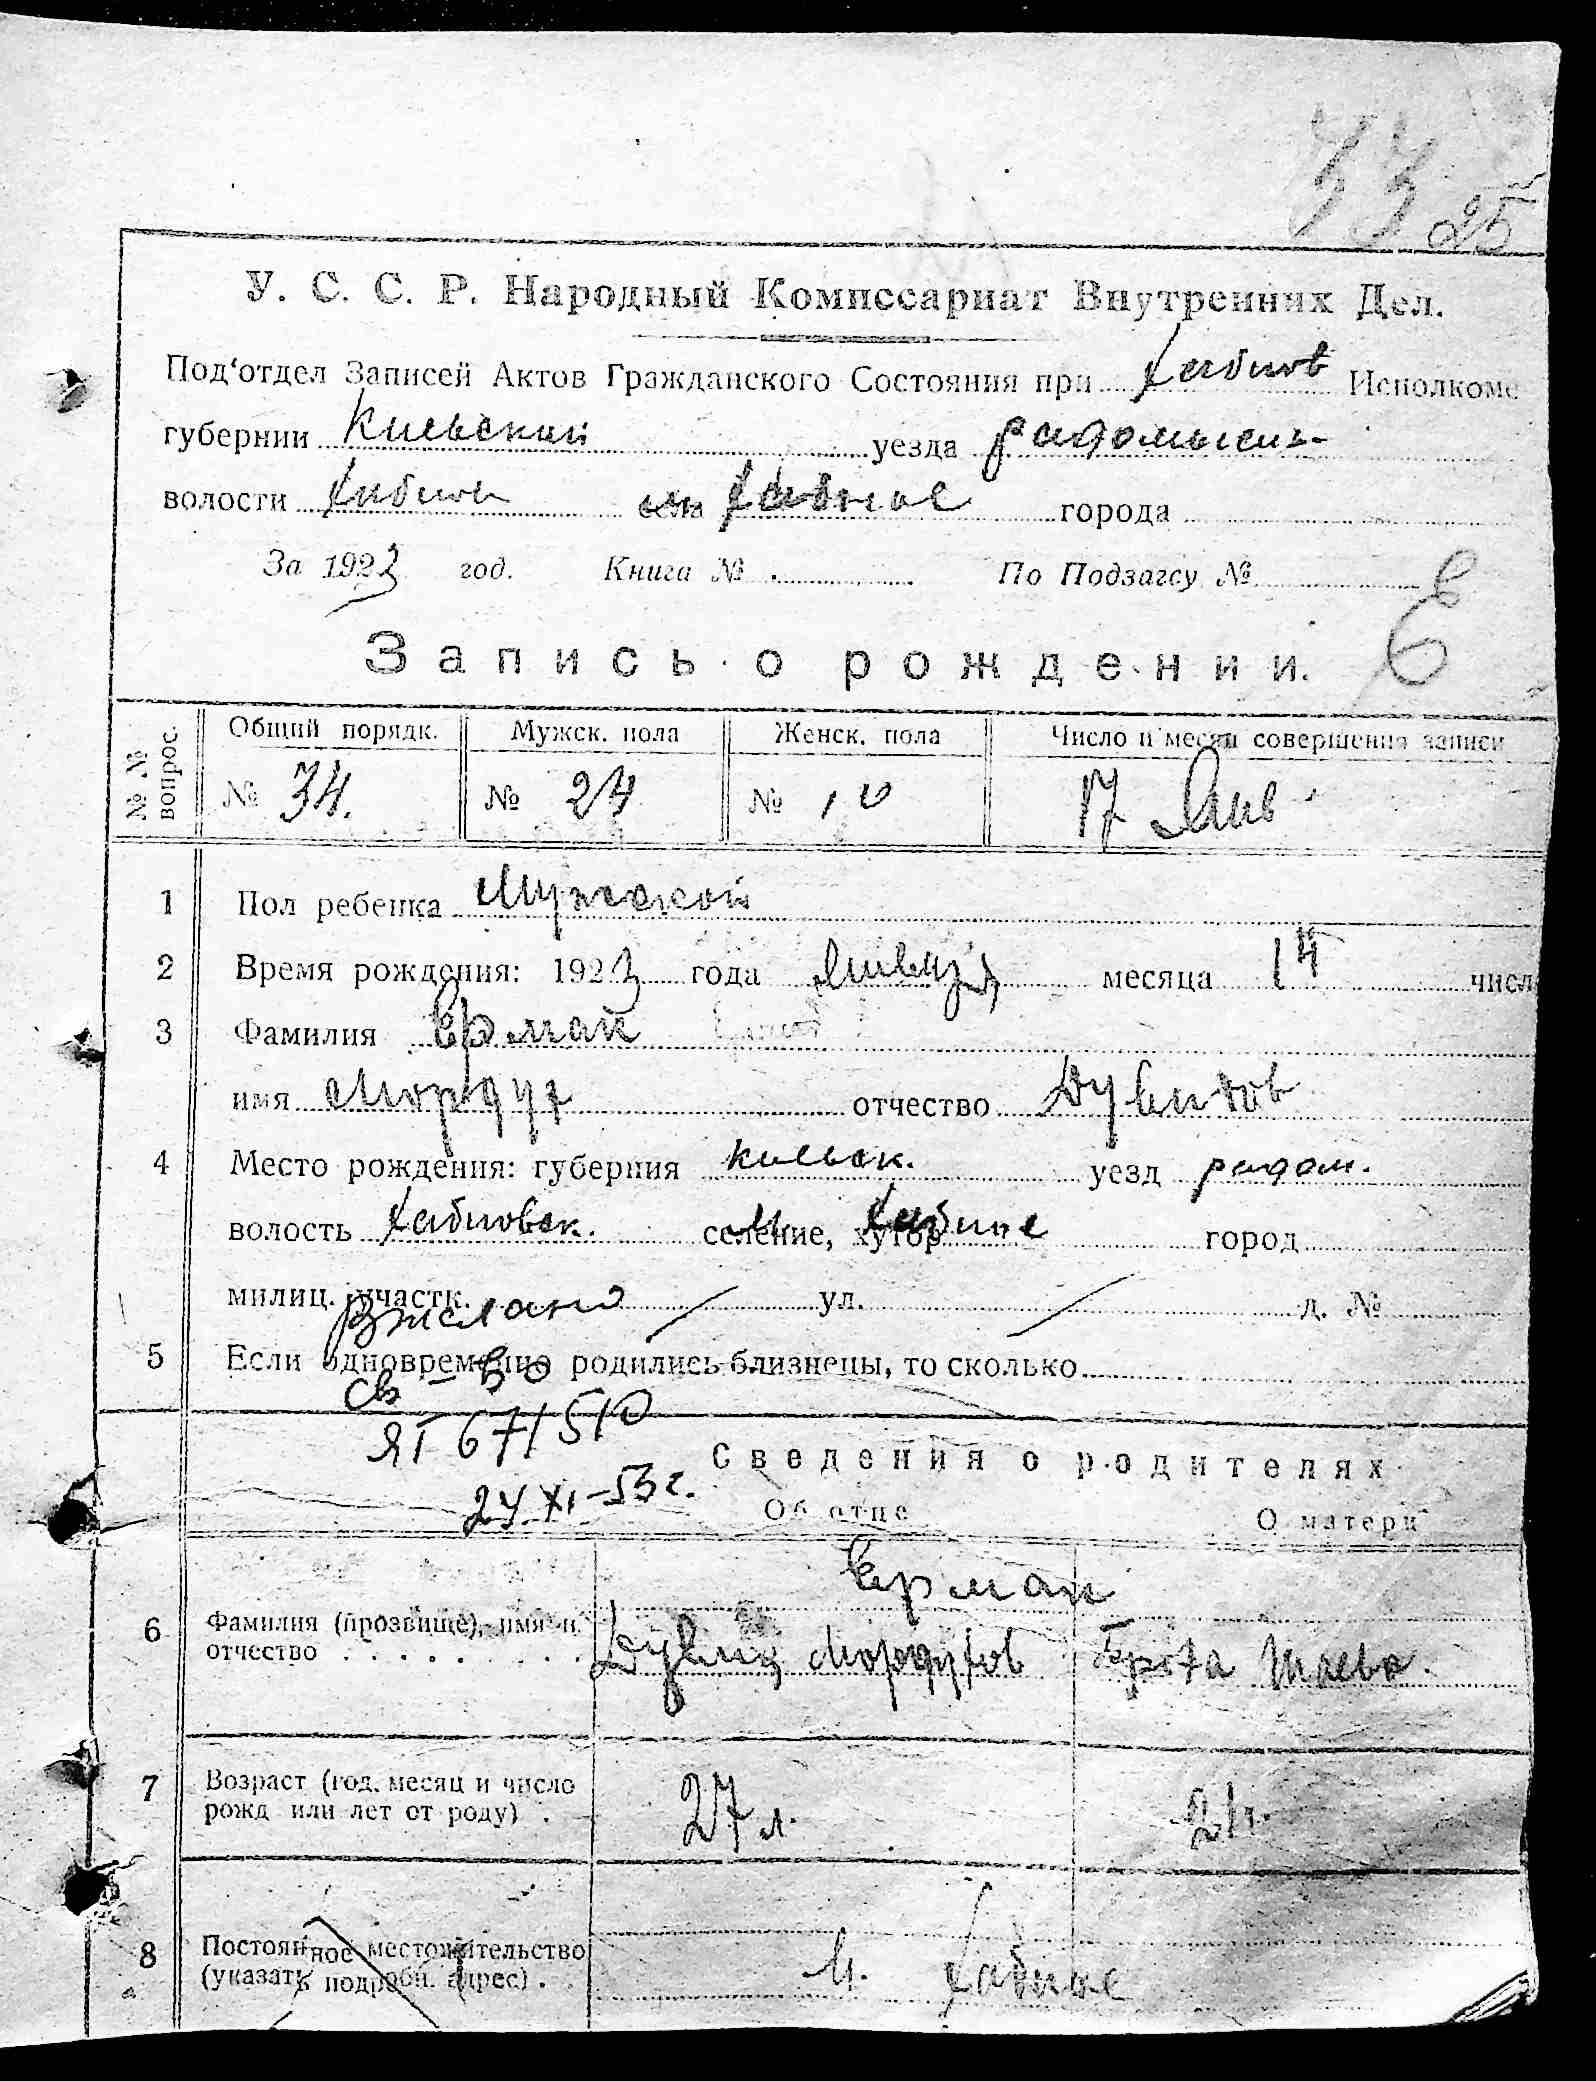 33 25
У. С. С. Р. Народный Комиссариат Внутренних Дел.
Под'отдел Записей Актов Гражданского Состояния при Хабнов Исполкоме
губернии Киевский уезда радомысль-
волости Хабнов м. Хабное города
За 1923 год. Книга № По Подзагсу №
Е
Запись о рождении.
№ № вопрос. Общий порядк. Мужск. пола Женск. пола Число и месяц совершения записи
№ 34. № 24 № 10 17 Янв
1 Пол ребенка Мужской
2 Время рождения: 1923 года Января месяца 14 числ
3 Фамилия Ерман
имя Мордух отчество Дувидов
4 Место рождения: губерния киевск. уезд радом.
волость Хабновск. селение, хутор м. Хабное город
милиц. участк. ул. д. №
выслано
5 Если одновременно родились близнецы, то сколько
св-во
ЯТ 671510
24 XI-53 г.
Сведения о родителях
Об отце О матери
Ерман
6 Фамилия (прозвище), имя и отчество Дувид Мордухов Шаева.
7 Возраст (год, месяц и число рожд или лет от роду) 27 л. 21 г.
8 Постоянное местожительство (указать подробн. адрес) М. Хабное